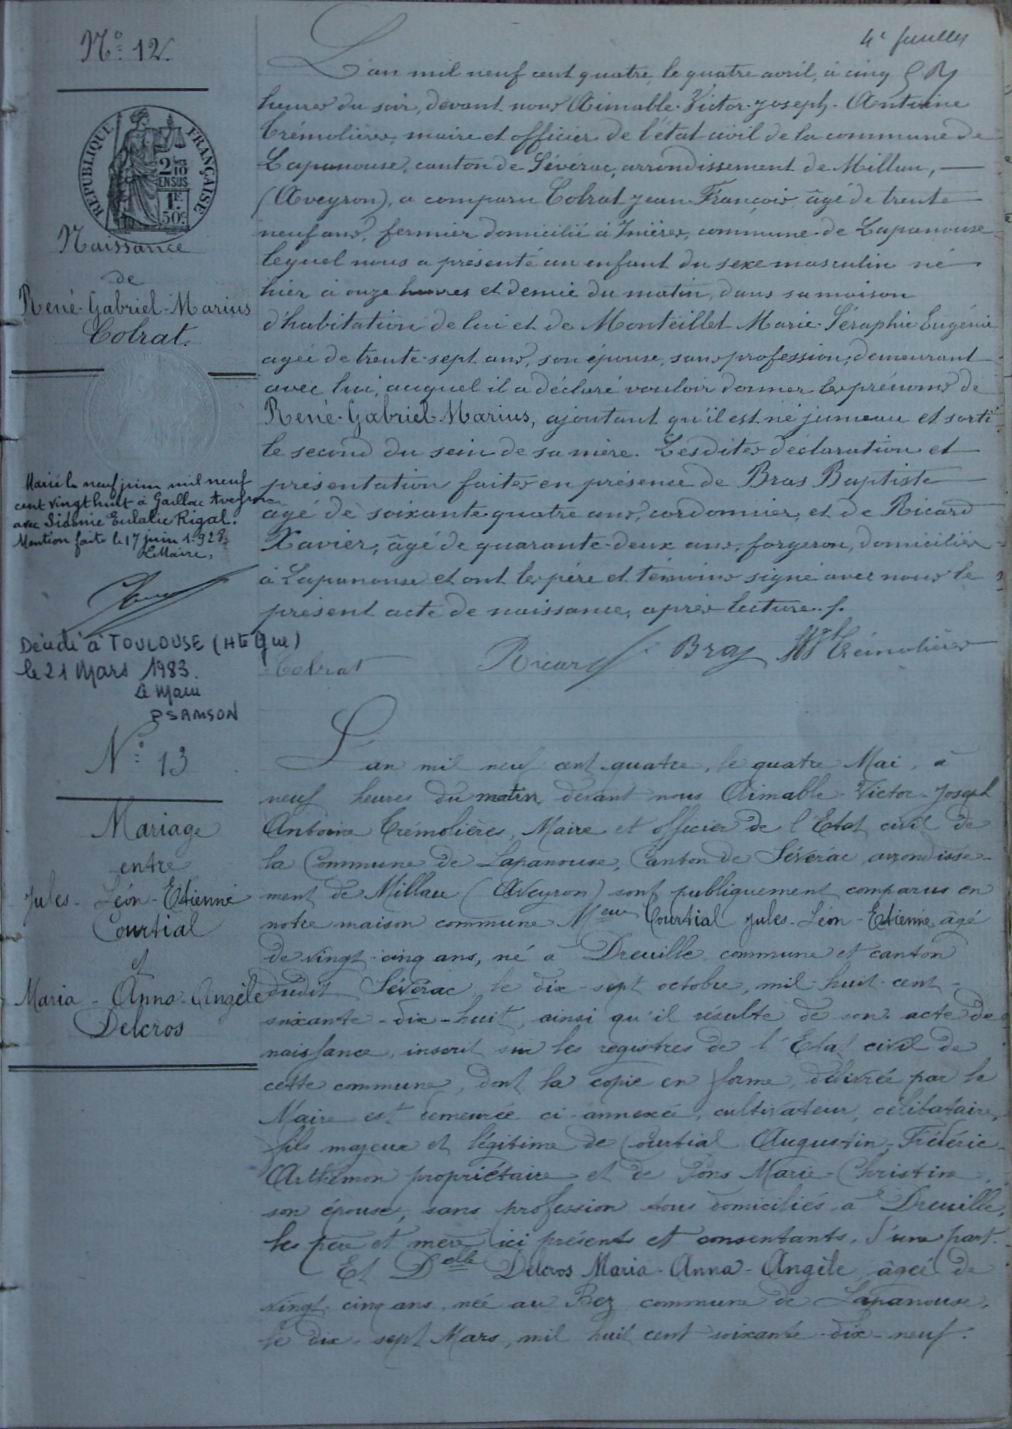 4e feuillet
N° 12.
RÉPUBLIQUE FRANÇAISE
2/10 EN SUS
1F 50c
Naissance
de
René-Gabriel-Marius
Colrat.
Marié le neuf juin mil neuf
cent vingt huit à Gaillac Aveyron
avec Sidonie Eulalie Rigal.
Mention faite le 17 juin 1928
Le Maire,
Décédé à TOULOUSE (Hte Gne)
le 21 Mars 1983.
Le Maire
P SAMSON
L'an mil neuf cent quatre, le quatre avril, à cinq
heures du soir, devant nous Aimable-Victor-Joseph-Antoine
Trémolières, maire et officier de l'état civil de la commune de
Lapanouse, canton de Séverac, arrondissement de Millau,
(Aveyron), a comparu Colrat Jean François âgé de trente
neuf ans, fermier domicilié à Inières, commune de Lapanouse
lequel nous a présenté un enfant du sexe masculin né
hier à onze heures et demie du matin, dans sa maison
d'habitation de lui et de Monteillet Marie-Séraphie Eugénie
agée de trente-sept ans, son épouse, sans profession, demeurant
avec lui, auquel il a déclaré vouloir donner les prénoms de
René-Gabriel-Marius, ajoutant qu'il est né jumeau et sorti
le second du sein de sa mère. Lesdites déclaration et
présentation faites en présence de Bras Baptiste
agé de soixante quatre ans, cordonnier, et de Ricard
Xavier, âgé de quarante-deux ans, forgeron, domiciliés
à Lapanouse et ont les père et temoins signé avec nous le
présent acte de naissance, après lecture.
Colrat Ricard Bras Trémolières
N° 13
Mariage
entre
Jules-Léon-Etienne
Courtial
et
Maria-Anna-Angèle
Delcros
L'an mil neuf cent quatre, le quatre Mai, à
neuf heures du matin, devant nous Aimable-Victor-Joseph
Antoine Trémolières, Maire et officier de l'Etat civil de
la Commune de Lapanouse, Canton de Séverac, arrondisse-
ment de Millau (Aveyron) sont publiquement comparus en
notre maison commune Courtial Jules-Léon-Etienne, âgé
de vingt-cinq ans, né à Dreuille commune et canton
dudit Séverac, le dix-sept octobre, mil huit cent-
soixante-dix-huit, ainsi qu'il résulte de son acte de
naissance, inscrit sur les registres de l'Etat civil de
cette commune, dont la copie en forme, délivrée par le
Maire est demeurée ci-annexée, cultivateur, célibataire,
fils majeur et légitime de Courtial Augustin-Frédéric-
Arthémon propriétaire et de Pons Marie-Christine,
son épouse, sans profession tous domiciliés à Dreuille,
les père et mère ici présents et consentants, d'une part.
Et Delle Delcros Maria-Anna-Angèle, âgée de
vingt-cinq ans, née au Bez commune de Lapanouse,
le dix-sept Mars, mil huit cent soixante-dix-neuf.